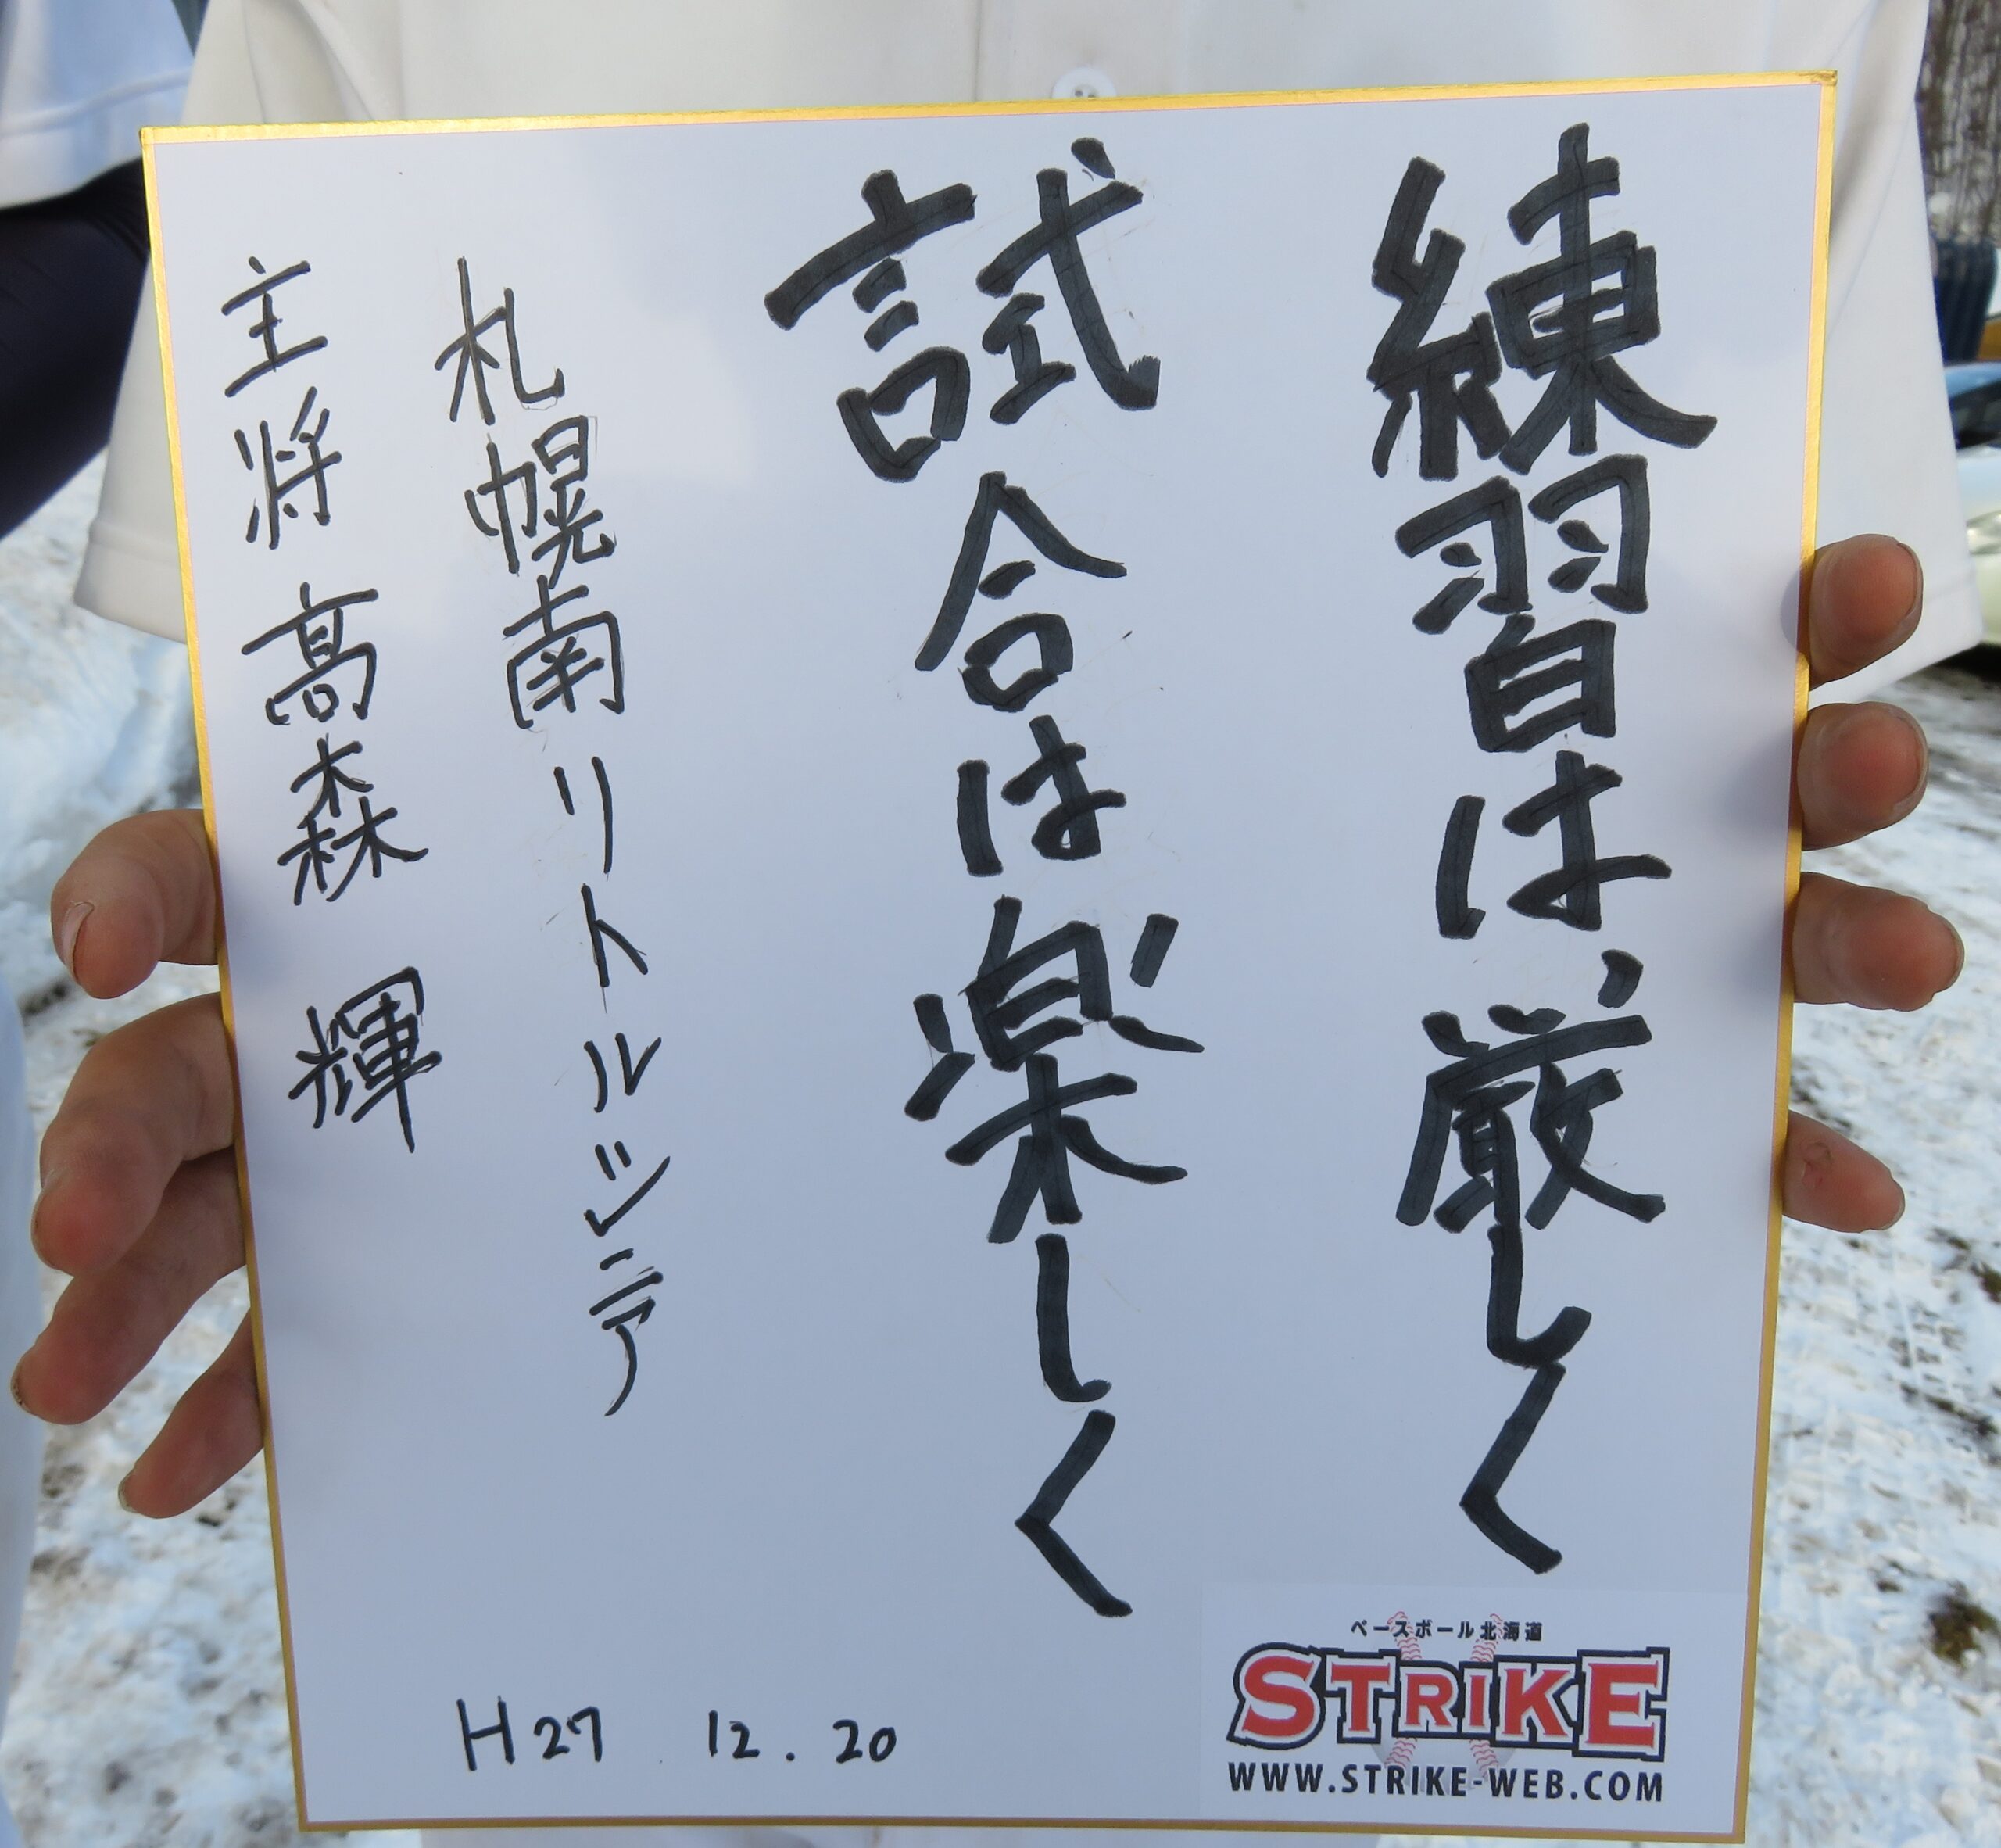 練習は、厳しく
試合は楽しく
札幌南リトルシニア
主将 髙森 輝
H27 . 12 . 20
ベースボール北海道
STRIKE
WWW.STRIKE-WEB.COM